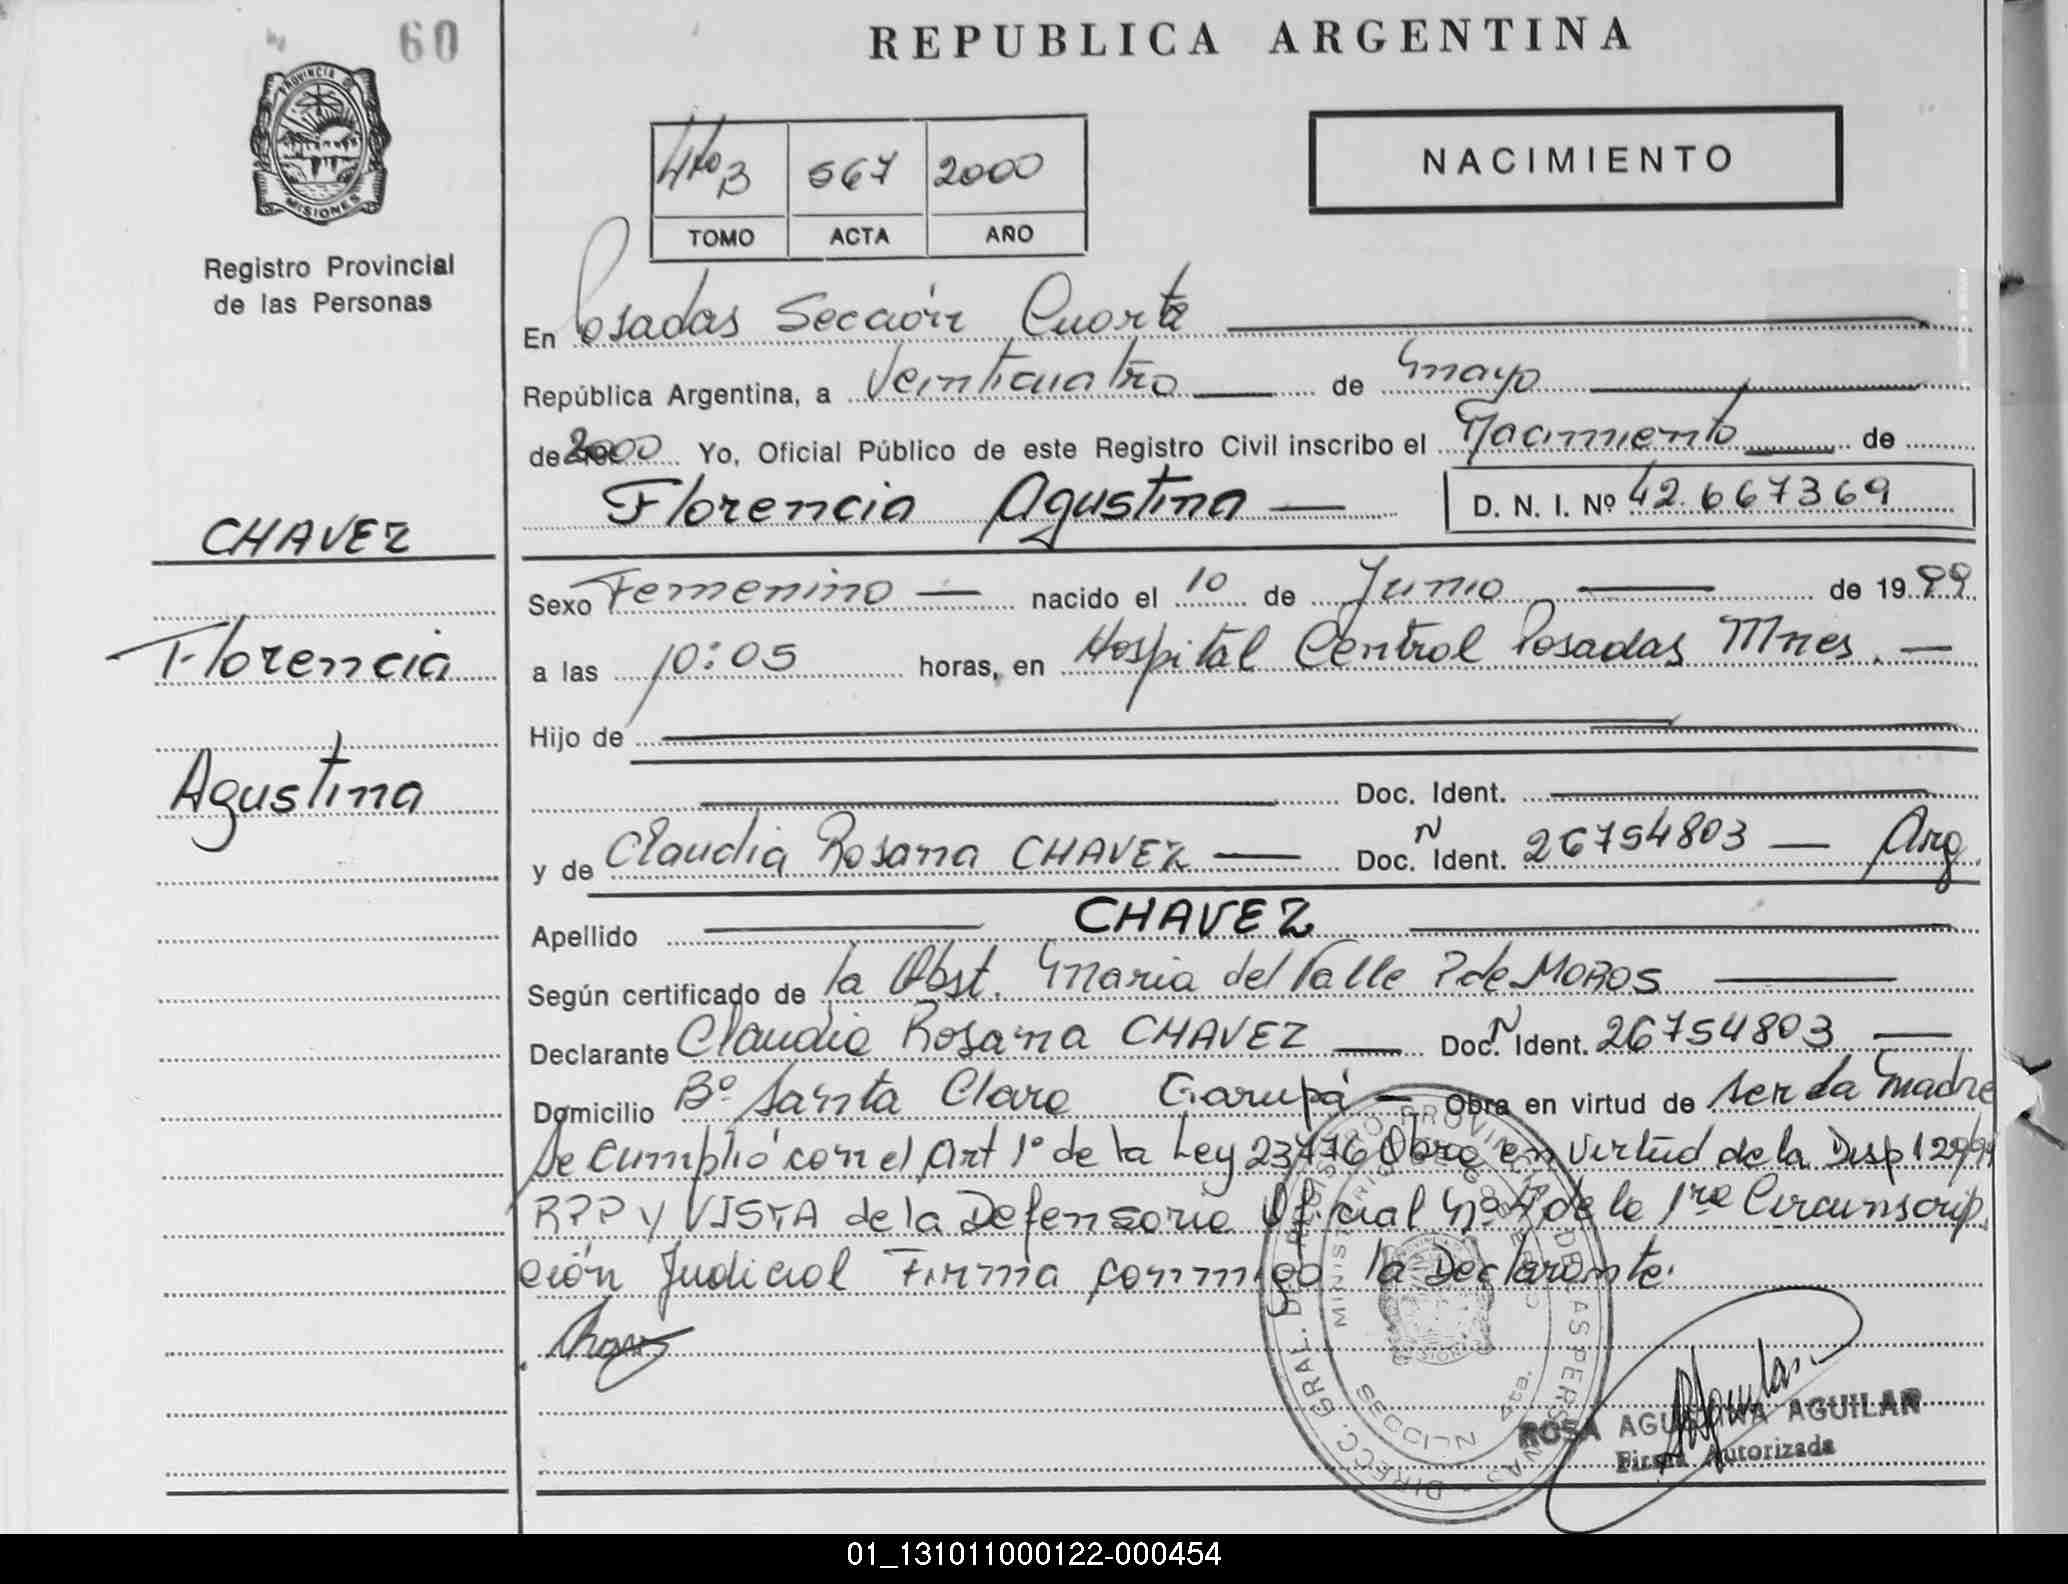 60
REPUBLICA ARGENTINA
PROVINCIA DE
MISIONES
Registro Provincial
de las Personas
4to B 567 2000
TOMO ACTA AÑO
NACIMIENTO
En Posadas Sección Cuarta
República Argentina, a Veinticuatro de Mayo
de 2000 Yo, Oficial Público de este Registro Civil inscribo el Nacimiento de
Florencia Agustina D. N. I. Nº 42.667369
CHAVEZ
Florencia
Agustina
Sexo Femenino nacido el 10 de Junio de 1999
a las 10:05 horas, en Hospital Central Posadas Mnes.
Hijo de
Doc. Ident.
y de Claudia Rosana CHAVEZ Doc. N Ident. 26754803 Arg.
Apellido CHAVEZ
Según certificado de la Obst. Maria del Valle P de MOROS
Declarante Claudia Rosana CHAVEZ Doc. N Ident. 26754803
Domicilio Bº Santa Clara Garupá Obra en virtud de ser la Madre
Se cumplió con el Art 1º de la Ley 23776 Obra en virtud de la Disp 129/99
RPP y VISTA de la Defensoria Oficial Nº 4 de la 1ra Circunscrip
ción Judicial Firma conmigo la Declarante.
DIRECC. GRAL. DEL REGISTRO PROVINCIAL DE LAS PERSONAS
MINISTERIO DE GOBIERNO
SECCION 4ta.
ROSA AGUSTINA AGUILAR
Firma Autorizada
01_131011000122-000454